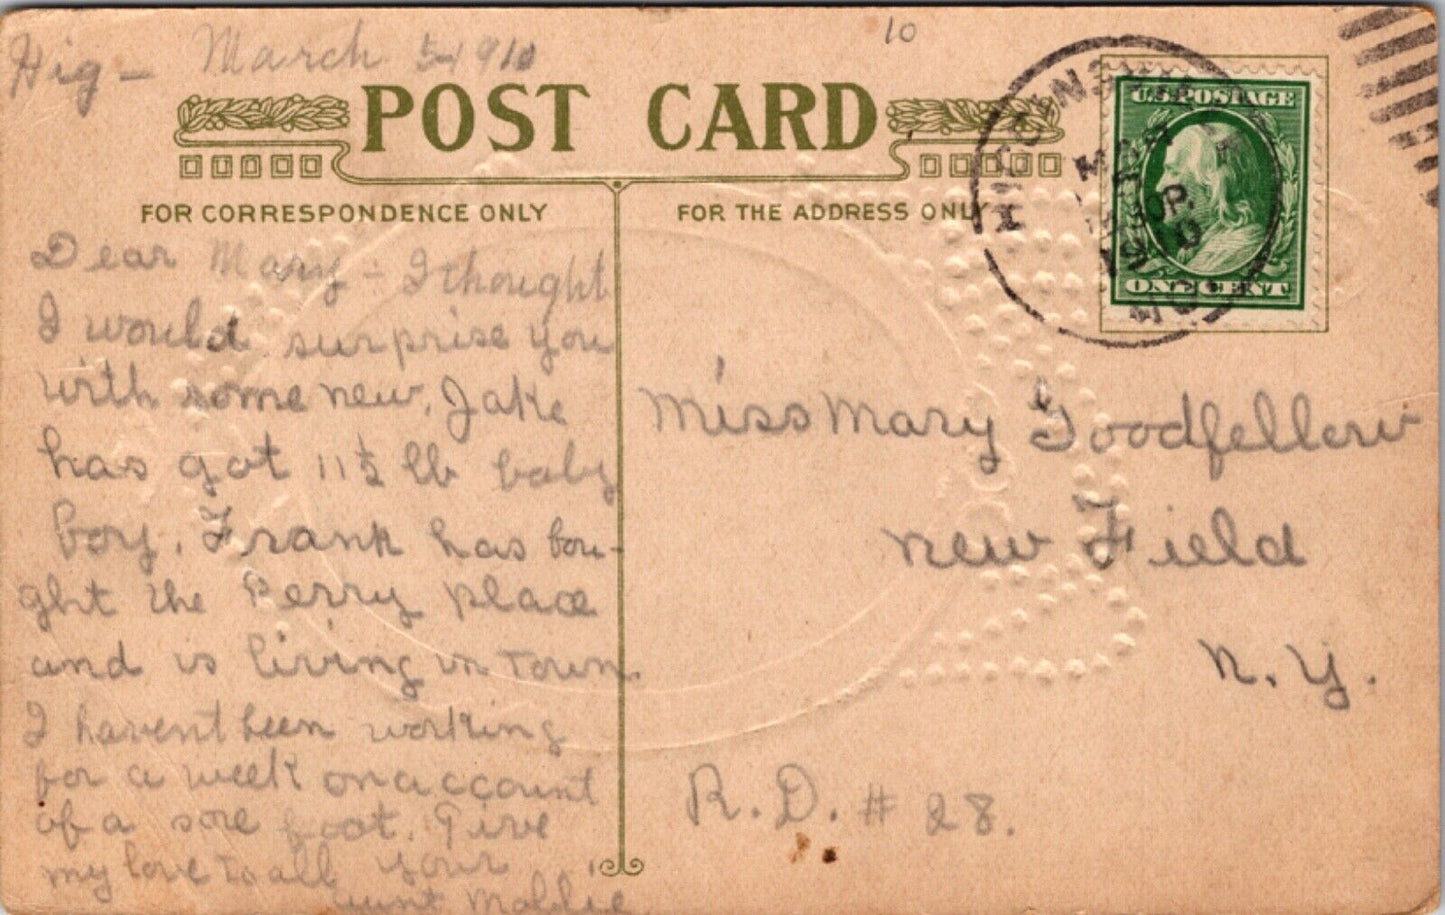 10
Hig - March 5-1910
POST CARD
U.S. POSTAGE
ONE CENT
HIGGINSVILLE
MAR
1910
MO.
FOR CORRESPONDENCE ONLY
FOR THE ADDRESS ONLY
Dear Mary - I thought
I would surprise you
with some new. Jake
has got 11½ lb baby
boy. Frank has bou-
ght the Perry place
and is living in Town.
I havent been working
for a week on account
of a sore foot. Give
my love to all your
Aunt Mollie
Miss Mary Goodfellow
New Field
N. Y.
R. D. # 28.